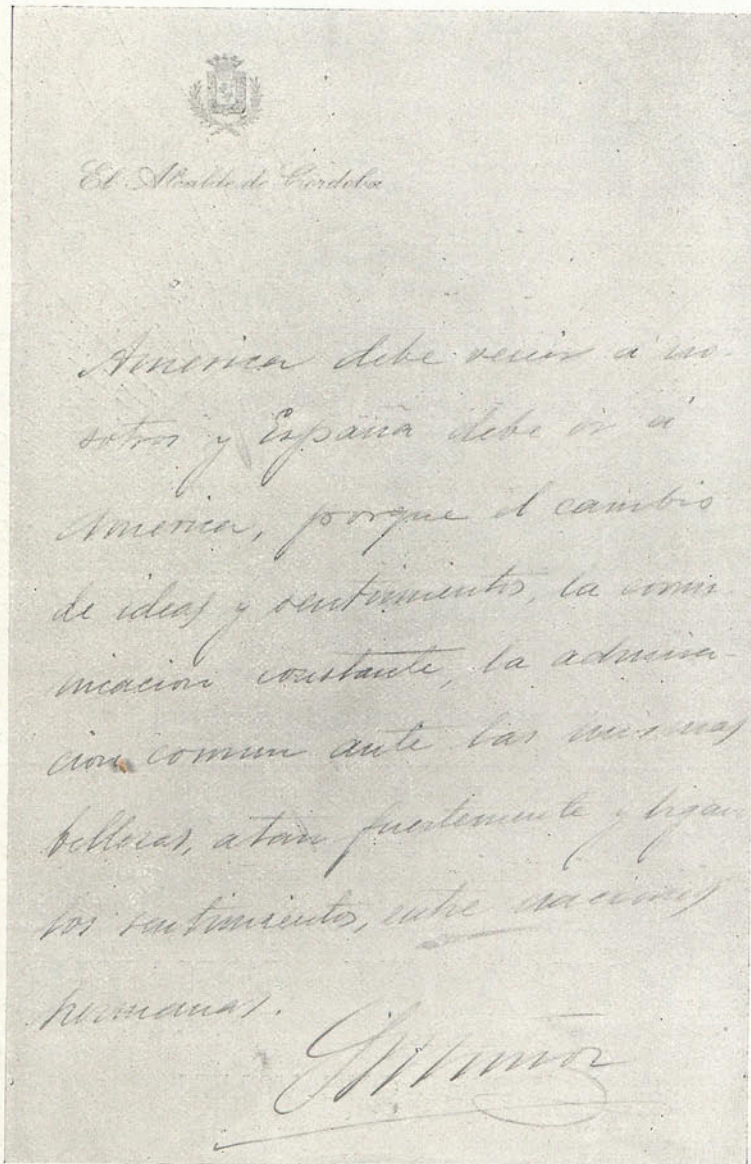 El Alcalde de Cordoba
America debe venir á no-
sotros y España debe ir á
America, porque el cambio
de ideas y sentimientos, la comu
nicacion constante, la admira-
cion comun ante las mismas
bellezas, atan fuertemente y ligan
los sentimientos, entre naciones
hermanas.
Muñoz